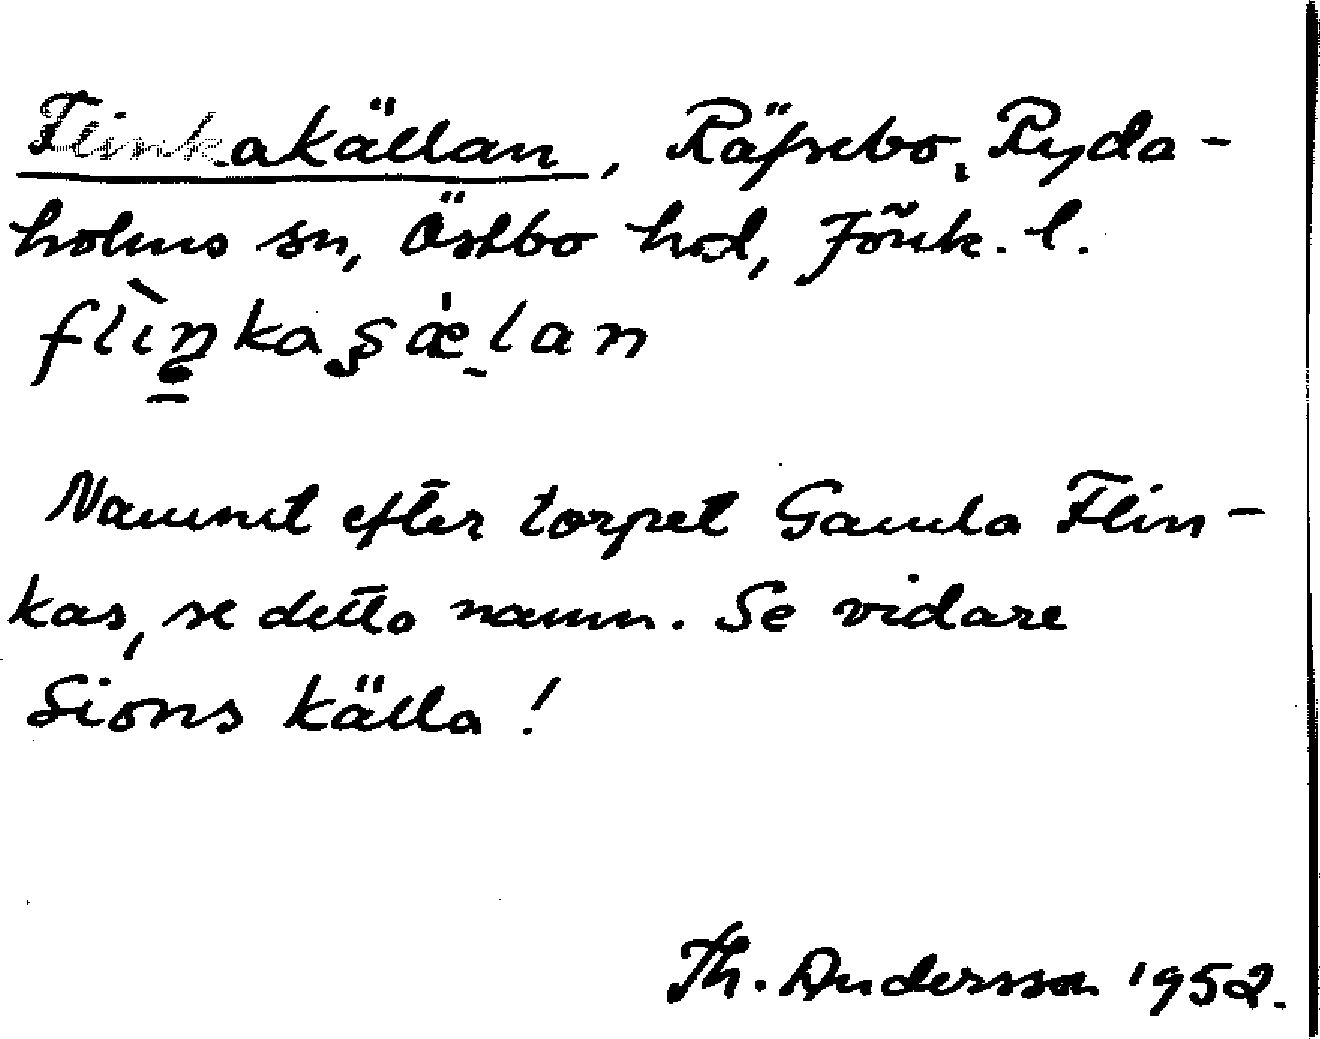 Flinkakällan, Räfsebo, Ryda-
holms sn, Östbo hd, Jönk. l.
flìŋkaʂǽlan
Namnet efter torpet Gamla Flin-
kas, se detta namn. Se vidare
Sions källa!
Th. Andersson 1952.